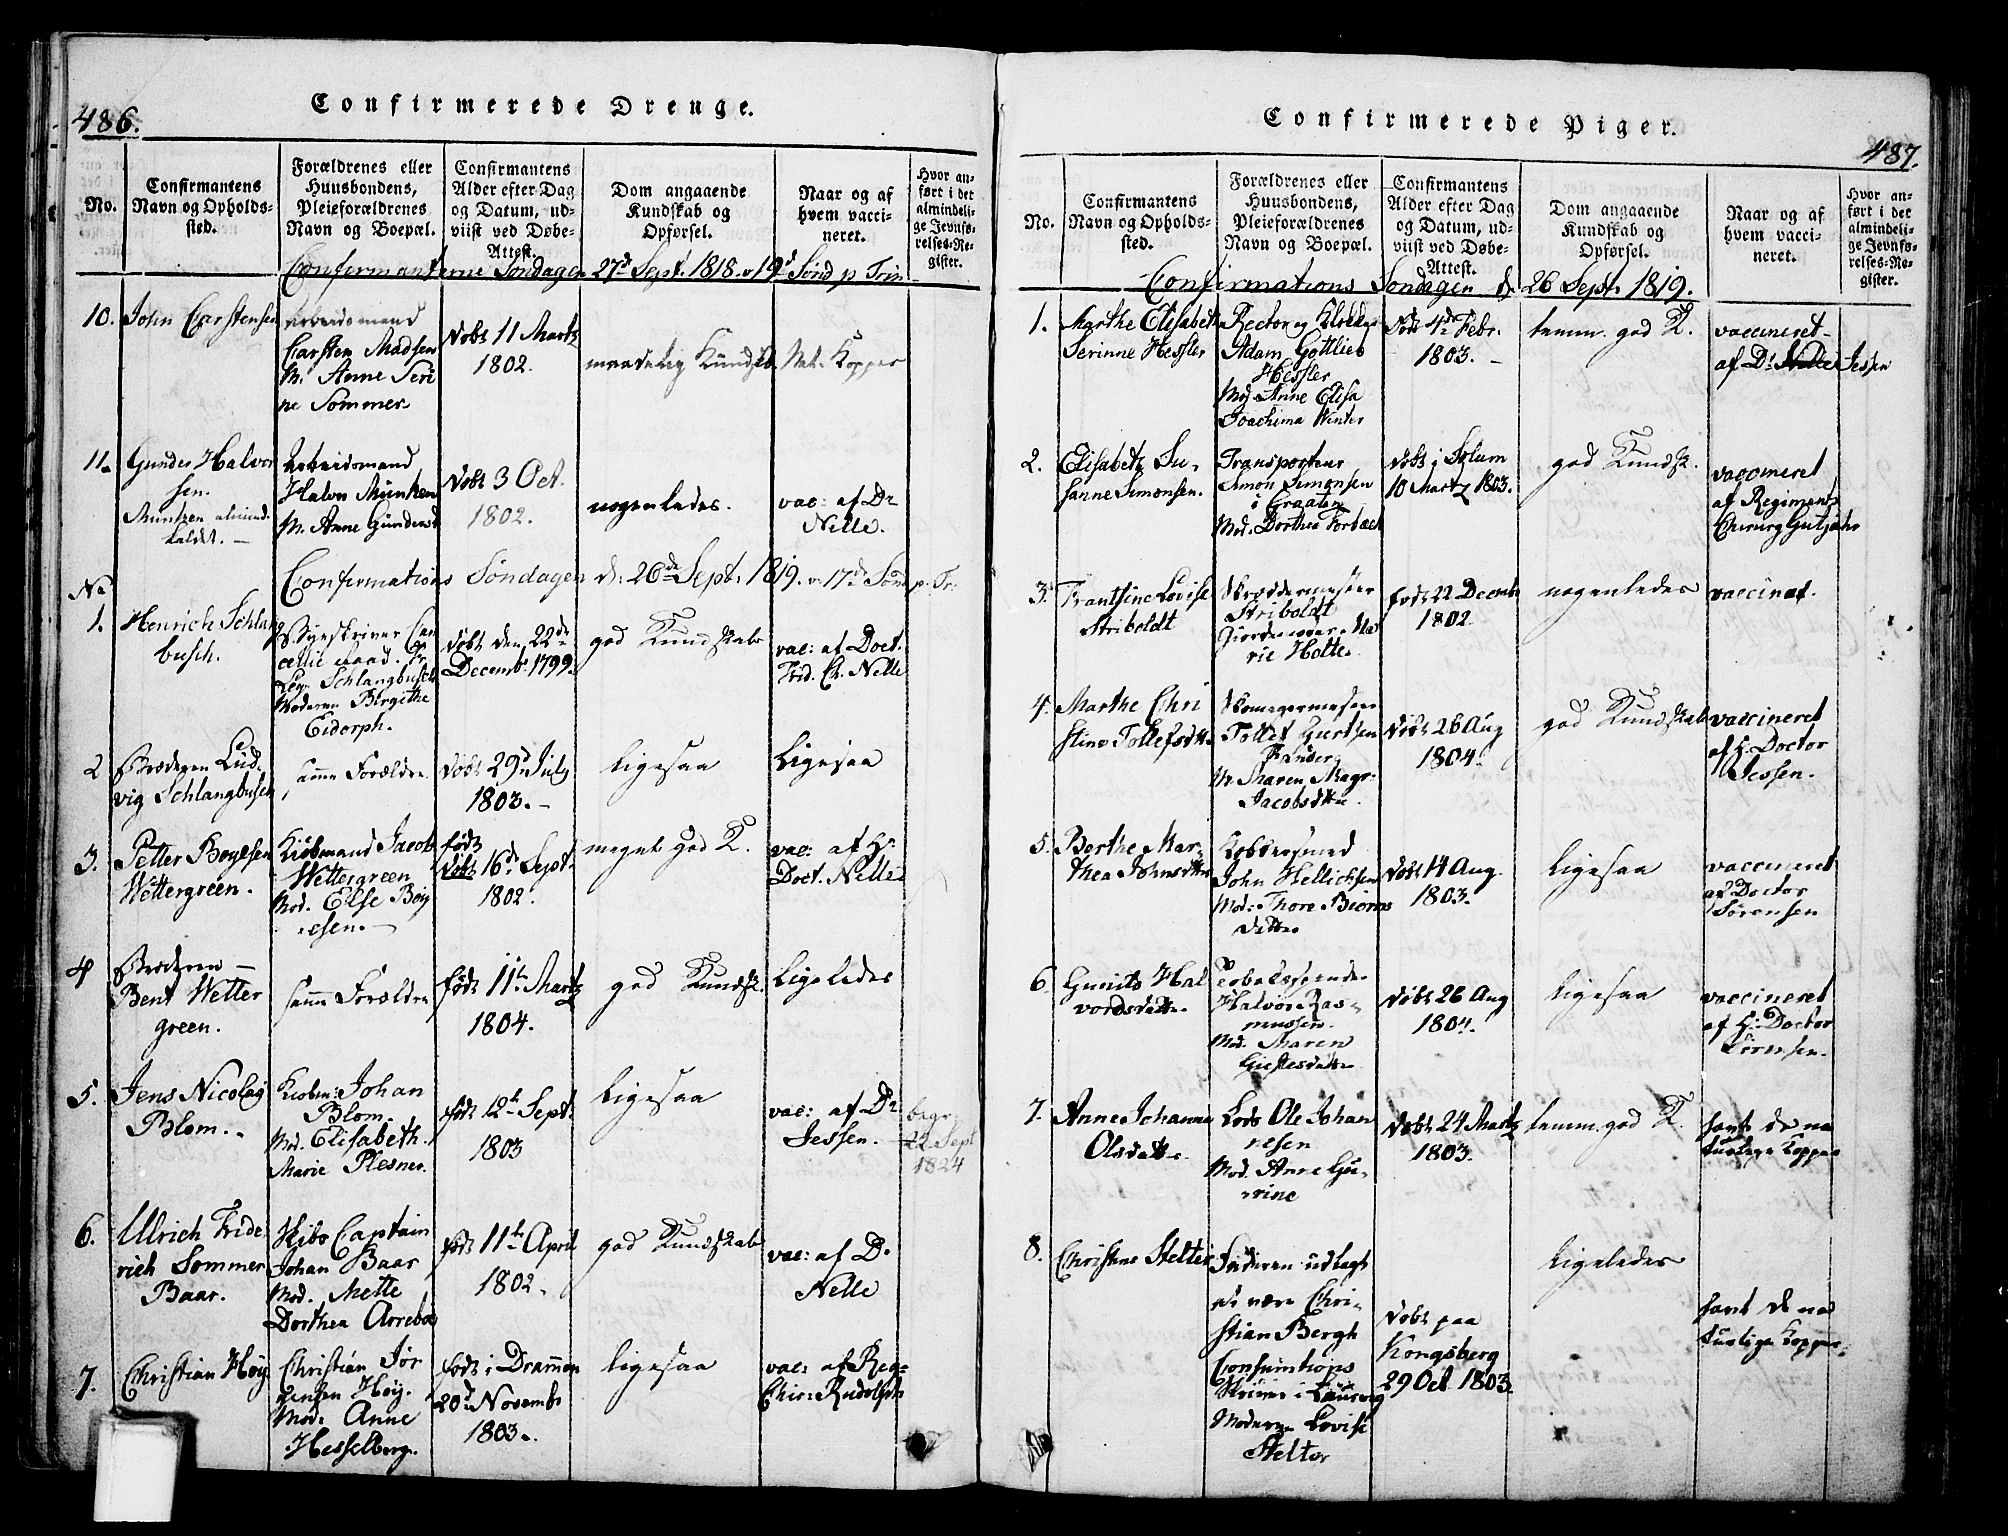 486.
Confirmerede Drenge.
No.
Confirmantens
Navn og Opholds-
sted.
Forældrenes eller
Huusbondens,
Pleieforældrenes
Navn og Boepæl.
Confirmantens
Alder efter Dag
og Datum, ud-
viist ved Døbe-
Attest.
Dom angaaende
Kundskab og
Opførsel.
Naar og af
hvem vacci-
neret.
Hvor an-
ført i det
almindeli-
ge Jevnfø-
relses-Re-
gister.
Confermanterne Søndagen 27d Sept. 1818. 19d Sönd p Trin
10.
John Carstensen
Arbeidsmand
Carsten Madsen
M. Anne Seri
ne Sommer
döbt 11 Martz
1802.
maadelig Kundsk.
Nat. Kopper
11.
Gunder Halvor
sen.
Muntzen almind.
kaldet. —
Arbeidsmand
Halvor Munken
M. Anne Gundersd
döbt 3 Oct.
1802.
nogenledes.
vac: af Dr
Nelle.
Confirmations Søndagen d: 26de Sept. 1819. 17de Sönd p. Tr:
No
1.
Henrich Schlang
busch.
Byeskriver Can
cellie Raad. Fr.
Schlangbusch
Moderen Birgithe
Eidorph.
döbt den 22de
Decembr 1799.
god Kundskab
vac: af Doct.
Frid. Ch. Nelle
2
Broderen Lud-
vig Schlangbusch
samme Forældre
döbt 29d July
1803. —
ligesaa
Ligesaa
3.
Petter Boyesen
Wettergreen.
Kiöbmand Jacob
Wettergreen
Mod. Else Boy
esen. —
födt
döbt 16d Sept.
1802.
meget god K.
vac: af H:
Doct. Nelle
4
Broderen —
Bent Wetter
green.
samme Forældre
födt 11te Martz
1804.
god Kundsk.
Ligeledes
5.
Jens Nicolay
Blom.
Kiöbm: Johan
Blom.
Mod. Elisabeth
Marie Plesner.
födt 12te Sept.
1803
Ligesaa
vac: af Dr
Jessen.
begr.
22 Sept
1824
6.
Ullrich Fride
rich Sommer
Baar.
Skibs Captain
Johan Baar
Mod. Mette
Dorthea Arrebo
födt 11te April
1802.
god Kundskab
vac: af D.
Nelle
7.
Christian Høy
Christian Jör
gensen Høy.
Mod: Anne
Hesselberg.
födt i Drammen
20d Novembr
1803.
ligesaa
vac: af Reg.
Chir: Rudolph
Confirmerede Piger.
487.
No.
Confirmantens
Navn og Opholds-
sted.
Forældrenes eller
Huusbondens,
Pleieforældrenes
Navn og Boepæl.
Confirmantens
Alder efter Dag
og Datum, ud-
viist ved Døbe-
Attest.
Dom angaaende
Kundskab og
Opførsel.
Naar og af
hvem vacci-
neret.
Hvor an-
ført i det
almindeli-
ge Jevnfø-
relses-Re-
gister.
Confirmations Søndagen d: 26 Sept. 1819.
1.
Marthe Elisabeth
Serinne Hessler
Rector og Klokker
Adam Gottlieb
Hessler
Mod. Anne Elisa
Joachima Winter
död 4de Febr.
1803. —
temm. god K.
vaccineret
af D: Nelle Jessen
2.
Elisabeth Su-
sanne Simonsen.
Transporteur
Simon Simonsen
i Graaten
Mod. Dorthea Forbech
döbt i Solum
10 Martz 1803.
god Kundsk.
vaccineret
af Regiments
Chirurg Gutzahr
3.
Frantsine Lovise
Striboldt
Skræddermester
Striboldt
Giordemoder. Ma
rie Holte.
födt 22 Decembr
1802.
nogenledes
vaccinat.
4.
Marthe Chri
stine Tollefsdtr
Skomagermester
Tollef Gurtsen
M. Maren Magr:
Jacobsdtr.
döbt 26 Aug
1804.
god Kundskab
vaccineret
af H. Doctor
Jessen.
5.
Berthe Mar-
thea Johnsdtr
Kobbersmed
John Kellichsen
Mod: Thore Biörns
datter
döbt 14 Aug.
1803.
Ligesaa
vaccineret
af Doctor
Sörensen
6
Gunild Hal
vorsdatter
Tobaksspinder
Halvor Ras-
mussen.
Mod. Maren
döbt 26 Aug
1804.
Ligesaa
vaccineret
af H: Doctor
Sörensen.
7.
Anne Johanne
Olsdatter.
Lods Ole Johan
nesen
Mod. Anne Gu-
rine
döbt 24 Martz
1803.
temm. god K.
havt de na
turlige Kopper
8.
Christine Stelter
Faderen udlagt
at være Chri-
stian Bergh
Consumtions
Skriver i Laurvig
Moderen Lovise
Stelter
döbt paa
Kongsberg
29 Oct 1803.
Ligeledes
havt de na
turlige Kopper.